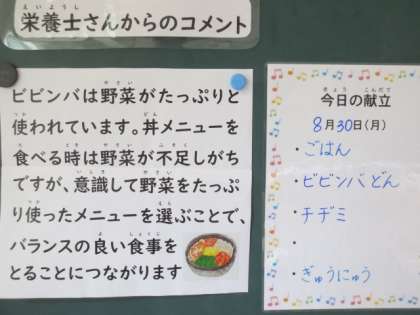 栄養士さんからのコメント
ビビンバは野菜がたっぷりと
使われています。丼メニューを
食べる時は野菜が不足しがち
ですが、意識して野菜をたっぷ
り使ったメニューを選ぶことで、
バランスの良い食事を
とることにつながります
今日の献立
8月30日(月)
・ごはん
・ビビンバどん
・チヂミ
・
・ぎゅうにゅう